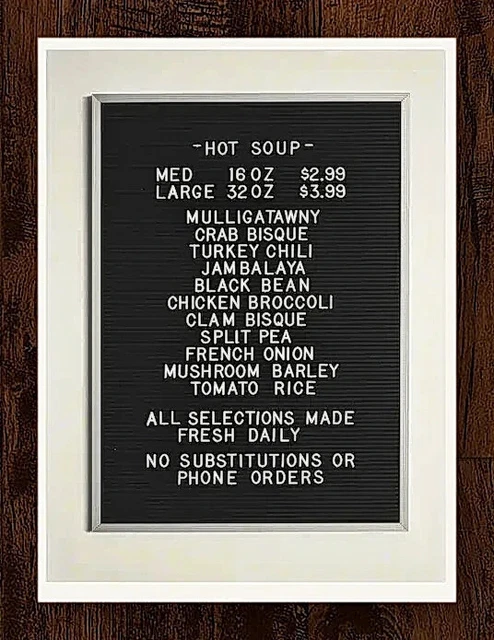 -HOT SOUP-
MED 16 OZ $2.99
LARGE 32 OZ $3.99
MULLIGATAWNY
CRAB BISQUE
TURKEY CHILI
JAMBALAYA
BLACK BEAN
CHICKEN BROCCOLI
CLAM BISQUE
SPLIT PEA
FRENCH ONION
MUSHROOM BARLEY
TOMATO RICE
ALL SELECTIONS MADE
FRESH DAILY
NO SUBSTITUTIONS OR
PHONE ORDERS